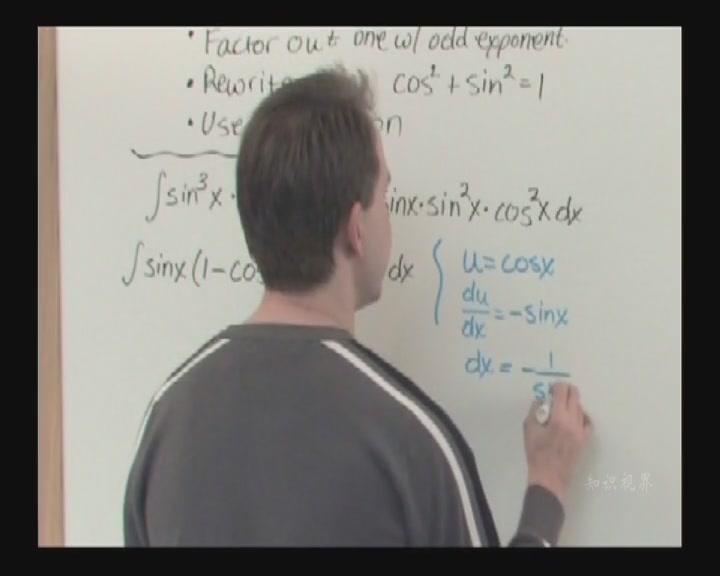 • Factor out one w/ odd exponent.
• Rewrite cos² + sin² = 1
• Use
∫sin³x · sinx·sin²x·cos²x dx
∫sinx(1-cos dx
u=cosx
du/dx = -sinx
dx = -1/s
知识视界